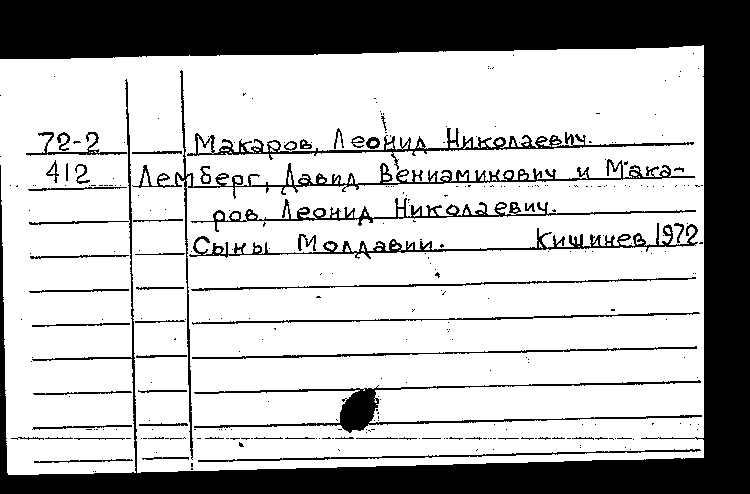 72-2 Макаров, Леонид Николаевич.
412 Лемберг, Давид Вениаминович и Мака-
ров, Леонид Николаевич.
Сыны Молдавии. Кишинев, 1972.